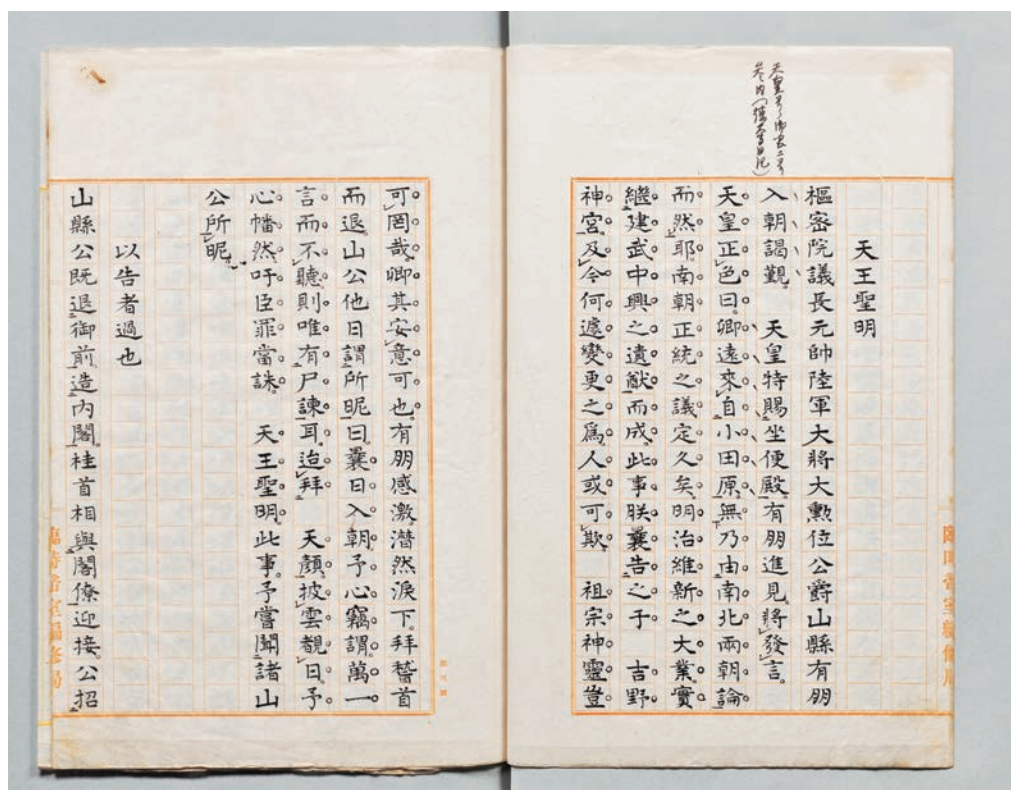 天王聖明
樞密院議長元帥陸軍大將大勲位公爵山縣有朋
入朝謁覲　天皇特賜坐便殿。有朋進見。將發言。
天皇正色曰。卿遠來自小田原。無乃由南北兩朝論
而然耶。南朝正統之議定久矣。明治維新之大業。實
繼建武中興之遺猷而成。此事朕曩告之于　吉野
神宮。及今何遽變更之爲。人或可欺　祖宗神靈豈
可罔哉。卿其安意可也。有朋感激。潸然淚下。拜稽首
而退。山公他日謂所昵曰。曩日入朝。予心竊謂。萬一
言而不聽。則唯有尸諫耳。迨拜　天顏披雲覩日。予
心幡然。吁臣罪當誅　天王聖明。此事予嘗聞諸山
公所昵。
以告者過也
山縣公既退御前。造内閣。桂首相與閣僚迎接。公招
臨時帝室編修局
臨時帝室編修局